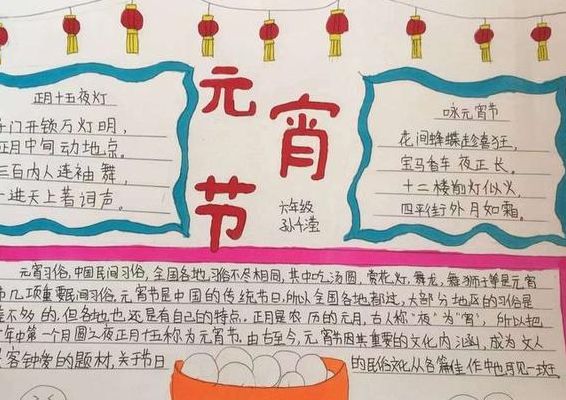 元
宵
节
六年级
正月十五夜灯
门开锁万灯明,
正月中旬动地京。
三百内人连袖舞,
进天上著词声。
咏元宵节
花间蜂蝶趁喜狂,
宝马香车夜正长。
十二楼前灯似火,
四平街外月如霜。
元宵习俗,中国民间习俗,全国各地习俗不尽相同,其中吃汤圆,赏花灯,舞龙,舞狮子等是元宵
几项重要民间习俗,元宵节是中国的传统节日,所以全国各地都过,大部分地区的习俗是
差不多的,但各地也还是有自己的特点。正月是农历的元月,古人称"夜"为"宵",所以把
年中第一个月圆之夜正月十五称为元宵节。由古至今,元宵节因其重要的文化内涵,成为文人
客钟爱的题材,关于节日的民俗文化从各篇佳作中也可见一斑